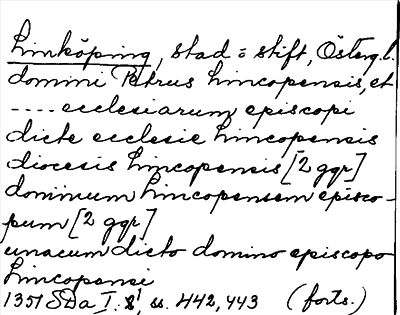 Linköping, stad = stift, Österg.l.
domini Petrus Lincopensis, et
.... ecclesiarum episcopi
dicte ecclesie Lincopensis
diocesis Lincopensis [2 ggr]
dominum Lincopensem episco-
pum [2 ggr]
unacum dicto domino episcopo
Lincopensi
1351 SDa I. s. 442, 443 (forts.)